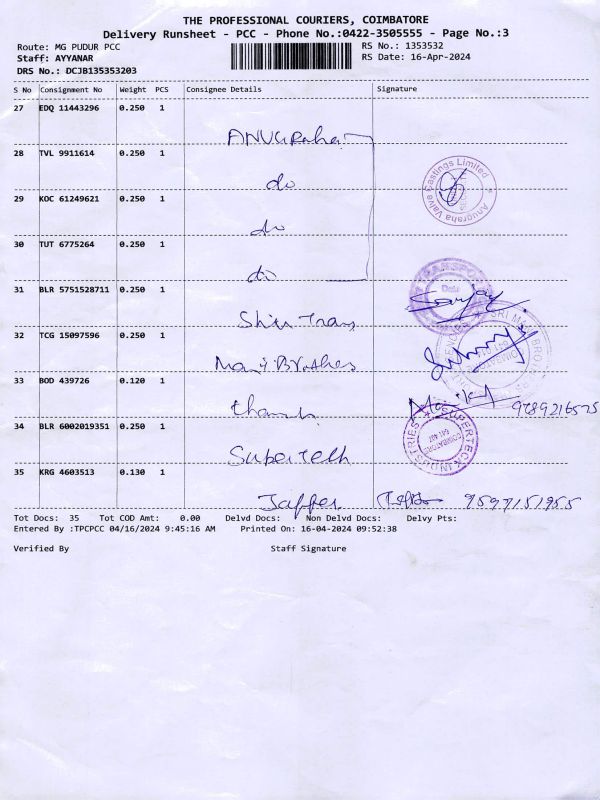 THE PROFESSIONAL COURIERS, COIMBATORE
Delivery Runsheet - PCC - Phone No.:0422-3505555 - Page No.:3
Route: MG PUDUR PCC
RS No.: 1353532
Staff: AYYANAR
RS Date: 16-Apr-2024
DRS No.: DCJB135353203
S No Consignment No Weight PCS Consignee Details Signature
27 EDQ 11443296 0.250 1
ANUGRaha
28 TVL 9911614 0.250 1
do
Anugraha Valve Castings Limited
29 KOC 61249621 0.250 1
do
30 TUT 6775264 0.250 1
do
31 BLR 5751528711 0.250 1
Sanjay
Shiv Trans
32 TCG 15097596 0.250 1
Mani Brothers
33 BOD 439726 0.120 1
9789216525
34 BLR 6002019351 0.250 1
SUPERTECK INDUSTRIES
COIMBATORE
Supertech
35 KRG 4603513 0.130 1
Jaffer 9597151955
Tot Docs: 35 Tot COD Amt: 0.00 Delvd Docs: Non Delvd Docs: Delvy Pts:
Entered By :TPCPCC 04/16/2024 9:45:16 AM Printed On: 16-04-2024 09:52:38
Verified By Staff Signature